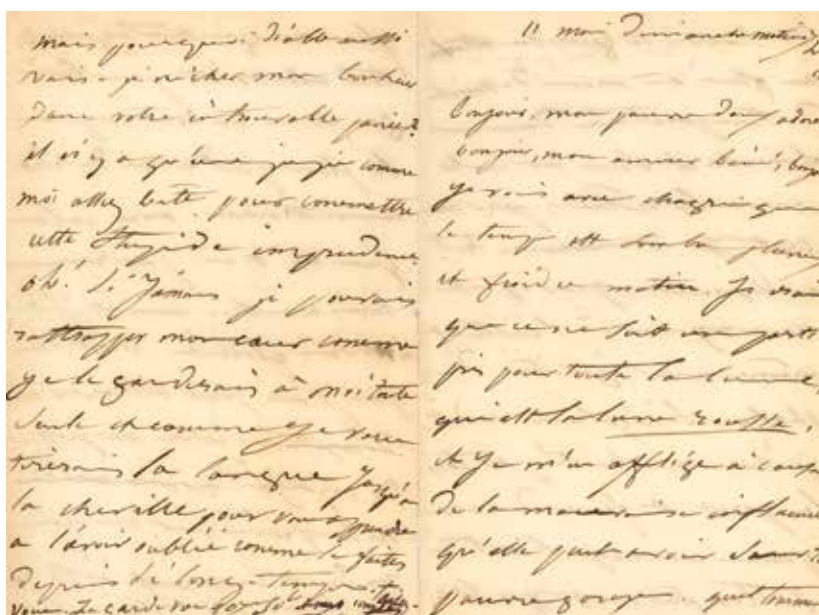 mais pourquoi diable aussi
vais-je nicher mon bonheur
dans votre introuvable
il n'y a qu'une juju comme
moi assez bête pour commettre
cette stupide imprudence
oh! si jamais je pouvais
rattrapper mon cœur comme
je le garderais à moi toute
seule et comme je vous
tirerais la langue jusqu'à
la cheville pour vous apprendre
à l'avoir oublié comme faites
depuis si longtemps
vous
11 mai Dimanche matin
bonjour, mon pauvre doux adoré
bonjour, mon amour béni,
Je vois avec chagrin que
le temps est
et froid ce matin. Je crains
que ce ne soit un parti
pris pour toute la lune,
qui est la lune rousse,
et je m'en afflige à cause
de la mauvaise influence
qu'elle peut avoir
pauvre gorge. quel